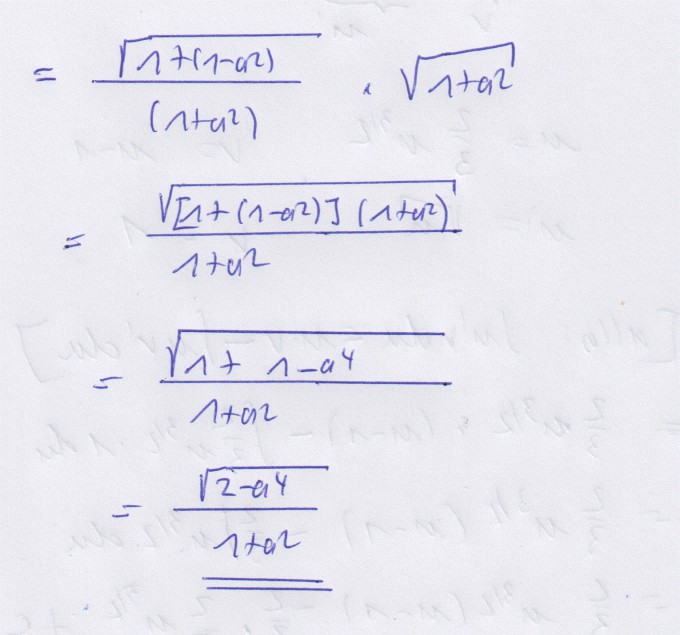 = √(1+(1-a²)) / (1+a²) · √(1+a²)
= √([1+(1-a²)] (1+a²)) / 1+a²
= √(1+ 1-a⁴) / 1+a²
= √(2-a⁴) / 1+a²